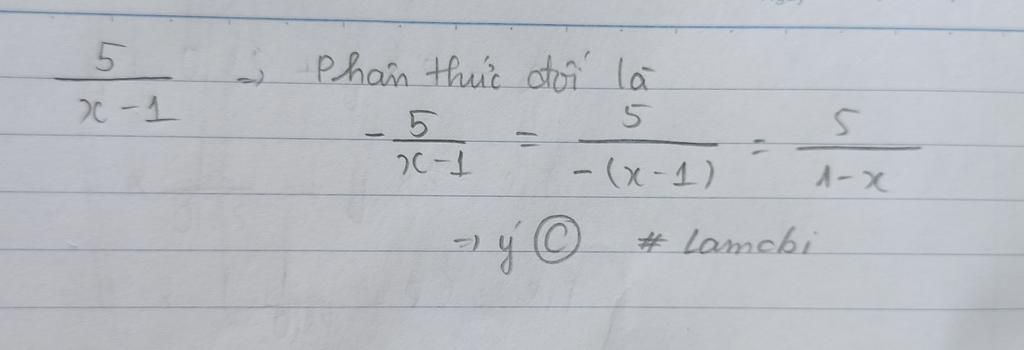 5/(x-1) => Phân thức đối là
-5/(x-1) = 5/(-(x-1)) = 5/(1-x)
=> ý Ⓒ # Lamchi